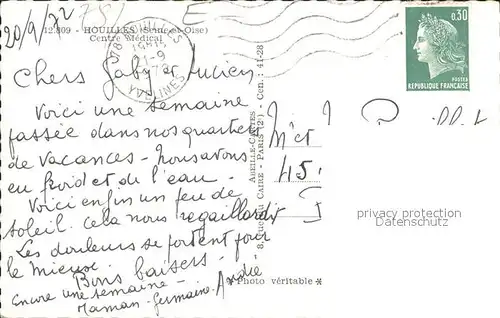 20/9/72
12.809 - HOUILLES (Seine-et-Oise)
Centre Médical
78 HOUILLES
YVELINES
0,30
POSTES
REPUBLIQUE FRANÇAISE
Chers Gaby et Lucien
Voici une semaine
passée dans nos quartiers
de vacances - nous avons
eu froid et de l'eau -
Voici enfin un peu de
soleil. cela nous regaillardit
Les douleurs se portent pour
le mieux.
Bons baisers -
Encore une semaine -
Maman - Germaine. André
ABEILLE-CARTES
8, Rue du CAIRE - PARIS (2e) - Cen. : 41-28
Photo véritable
privacy protection
Datenschutz